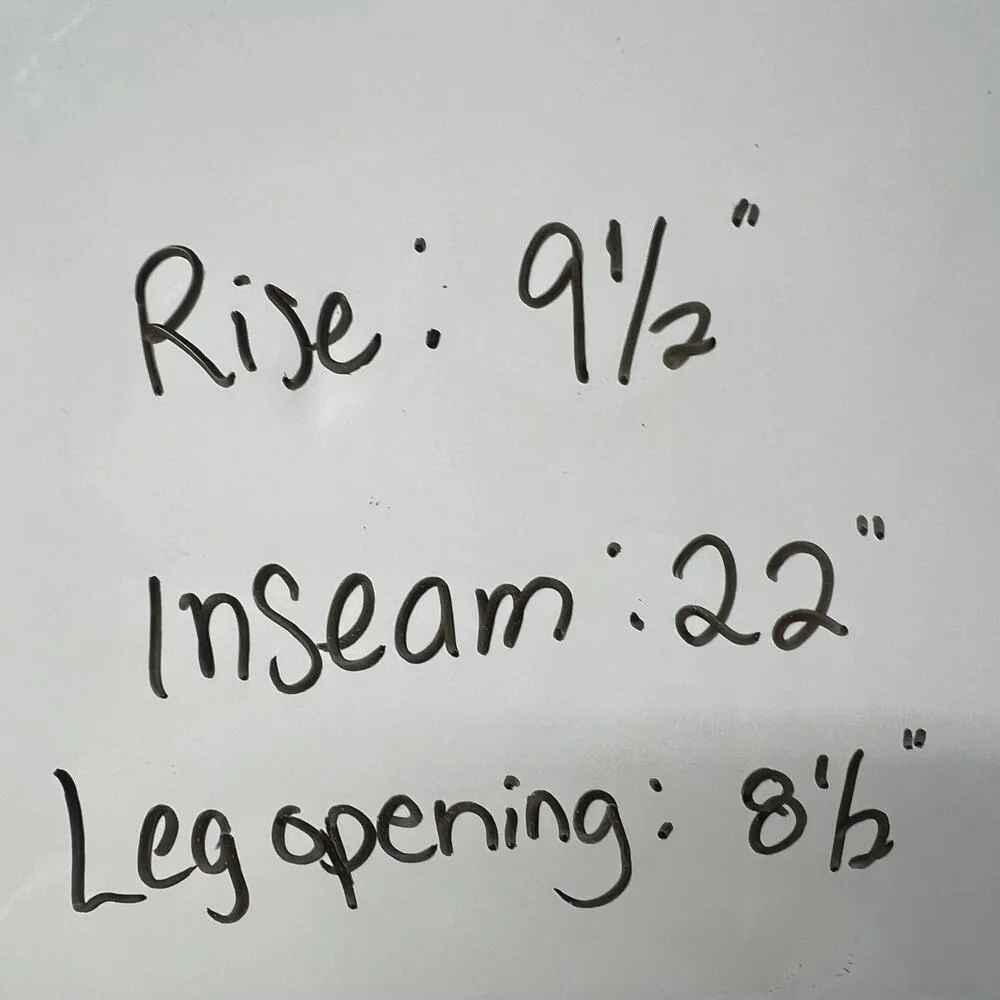 Rise: 9 1/2"
Inseam: 22"
Leg opening: 8 1/2"